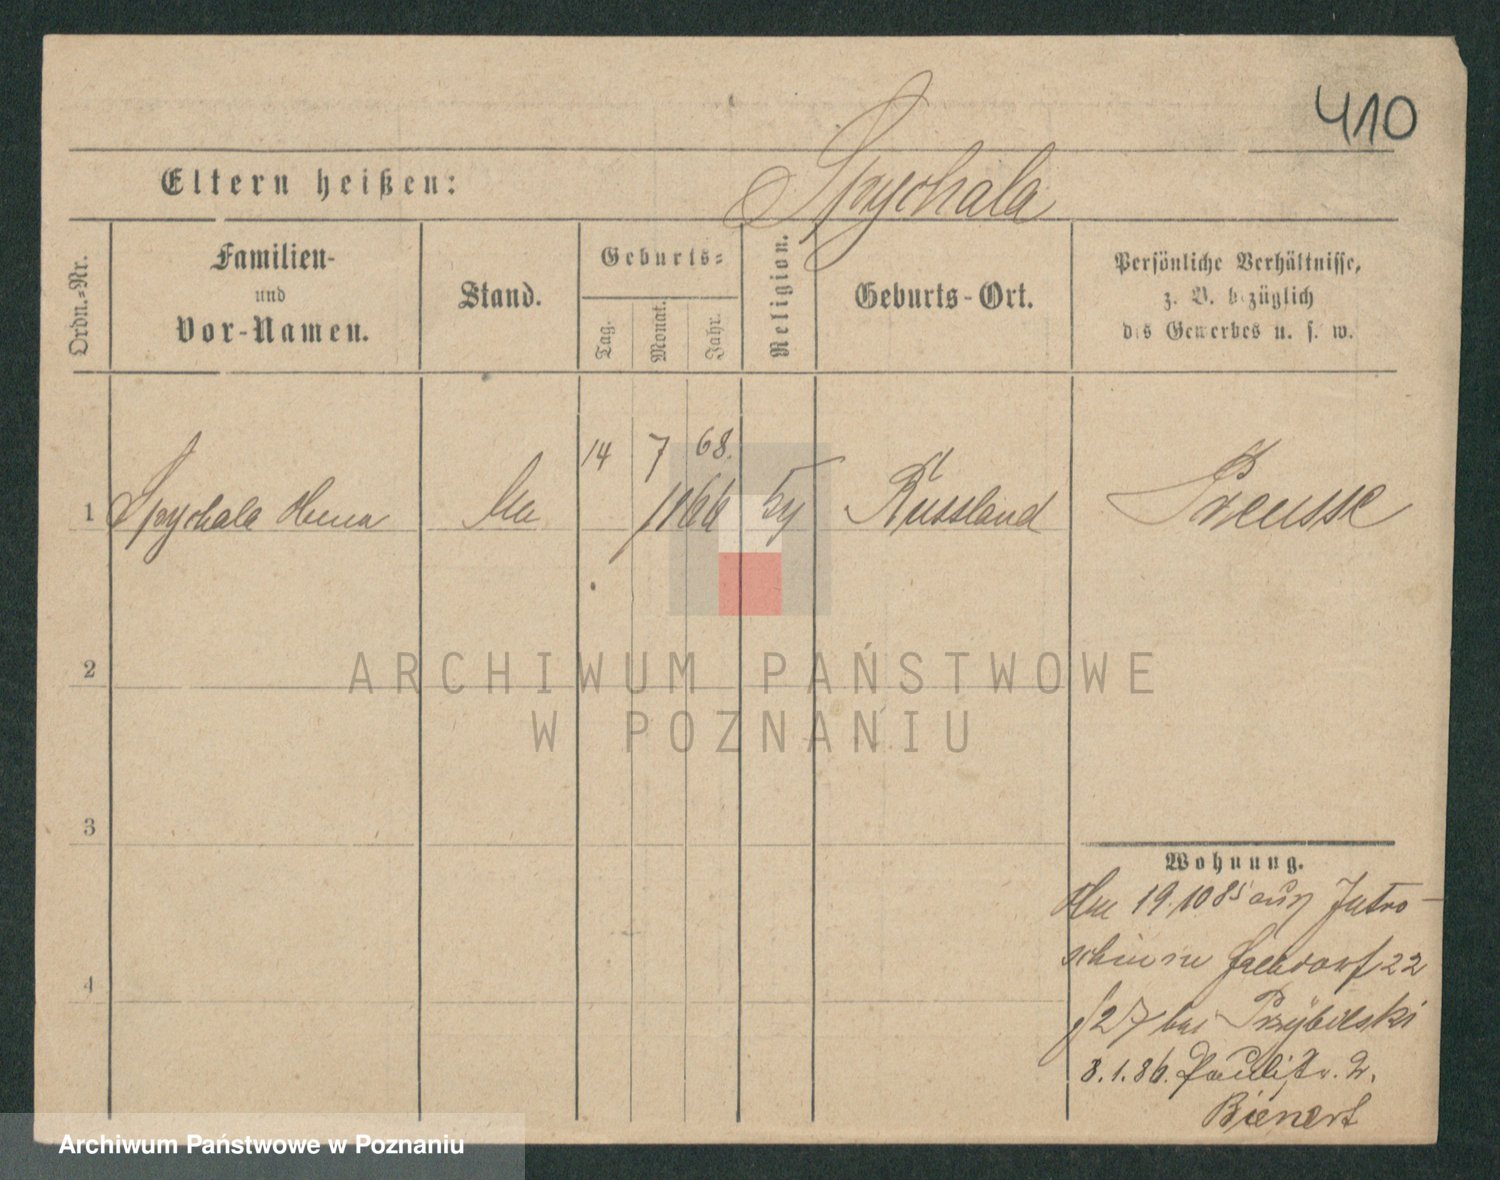 410
Eltern heißen:
Spychala
Ordn.-Nr.
Familien-
und
Vor-Namen.
Stand.
Geburts-
Tag.
Monat.
Jahr.
Religion.
Geburts-Ort.
Persönliche Verhältnisse,
z. B. bezüglich
des Gewerbes u. s. w.
14 7 68.
1 Spychala 1866 Russland Preusse
2
ARCHIWUM PAŃSTWOWE
W POZNANIU
3
Wohnung.
19.10 85 aus Jutro-
schin 22
27 bei Przybilski
4
3.1.86. Paulistr. 2.
Bienert
Archiwum Państwowe w Poznaniu